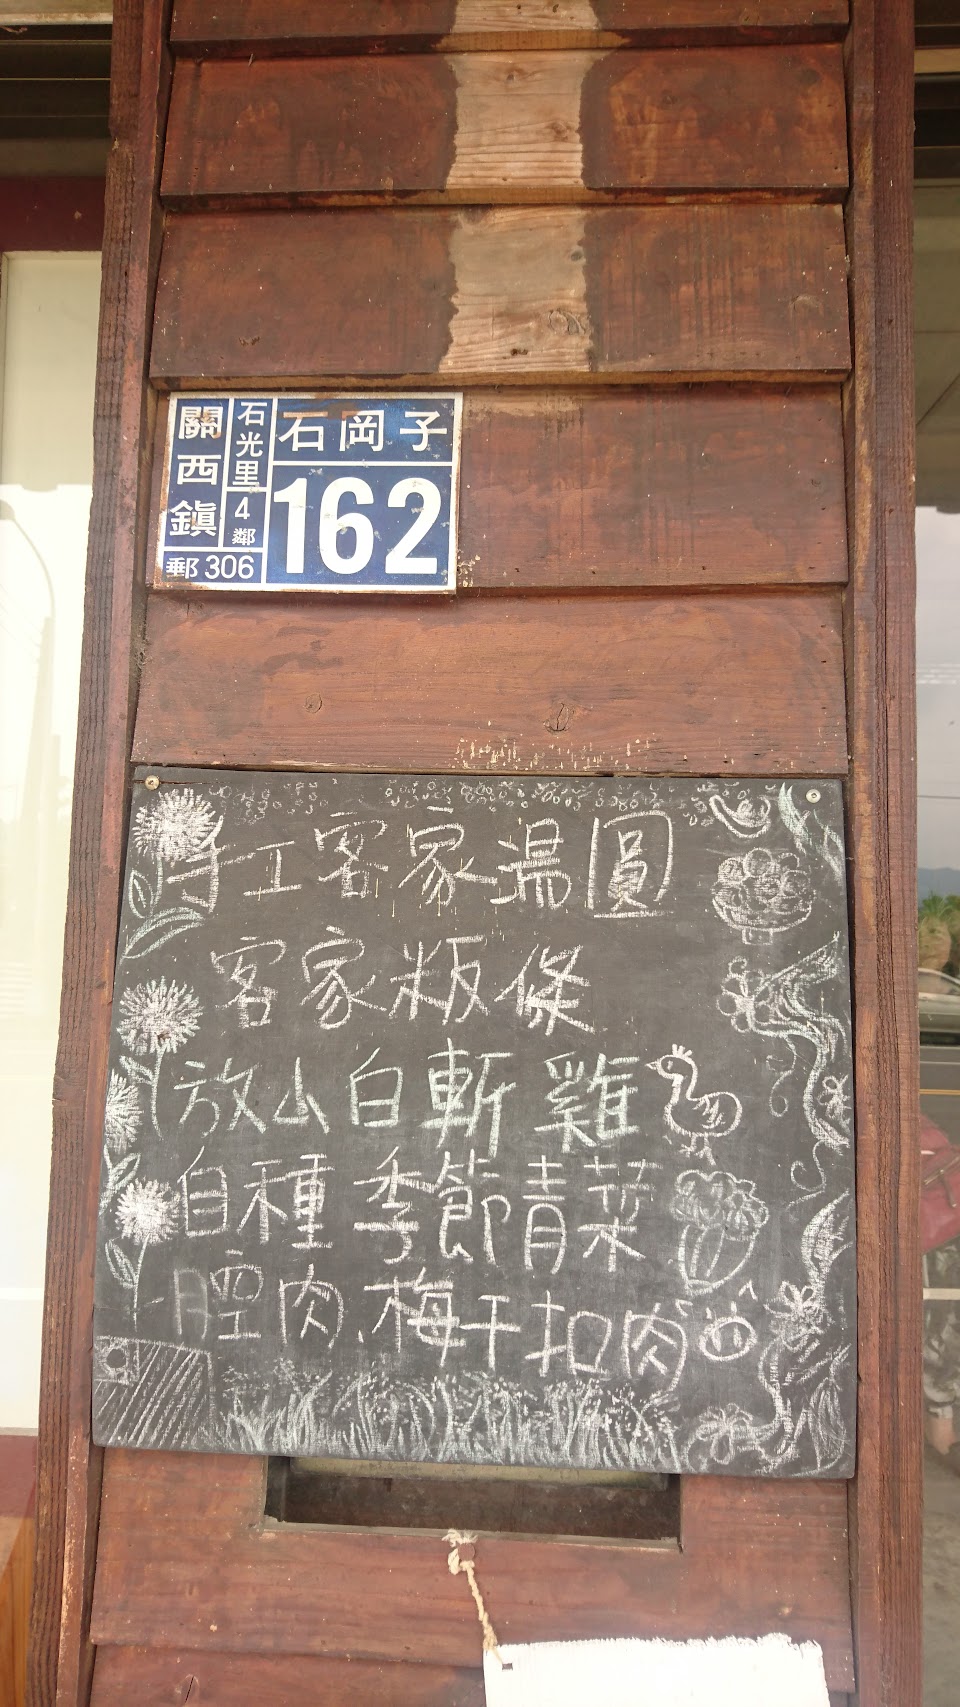 關西鎮
石光里
4鄰
郵306
石岡子
162
手工客家湯圓
客家粄條
放山白斬雞
自種季節青菜
腔肉.梅干扣肉